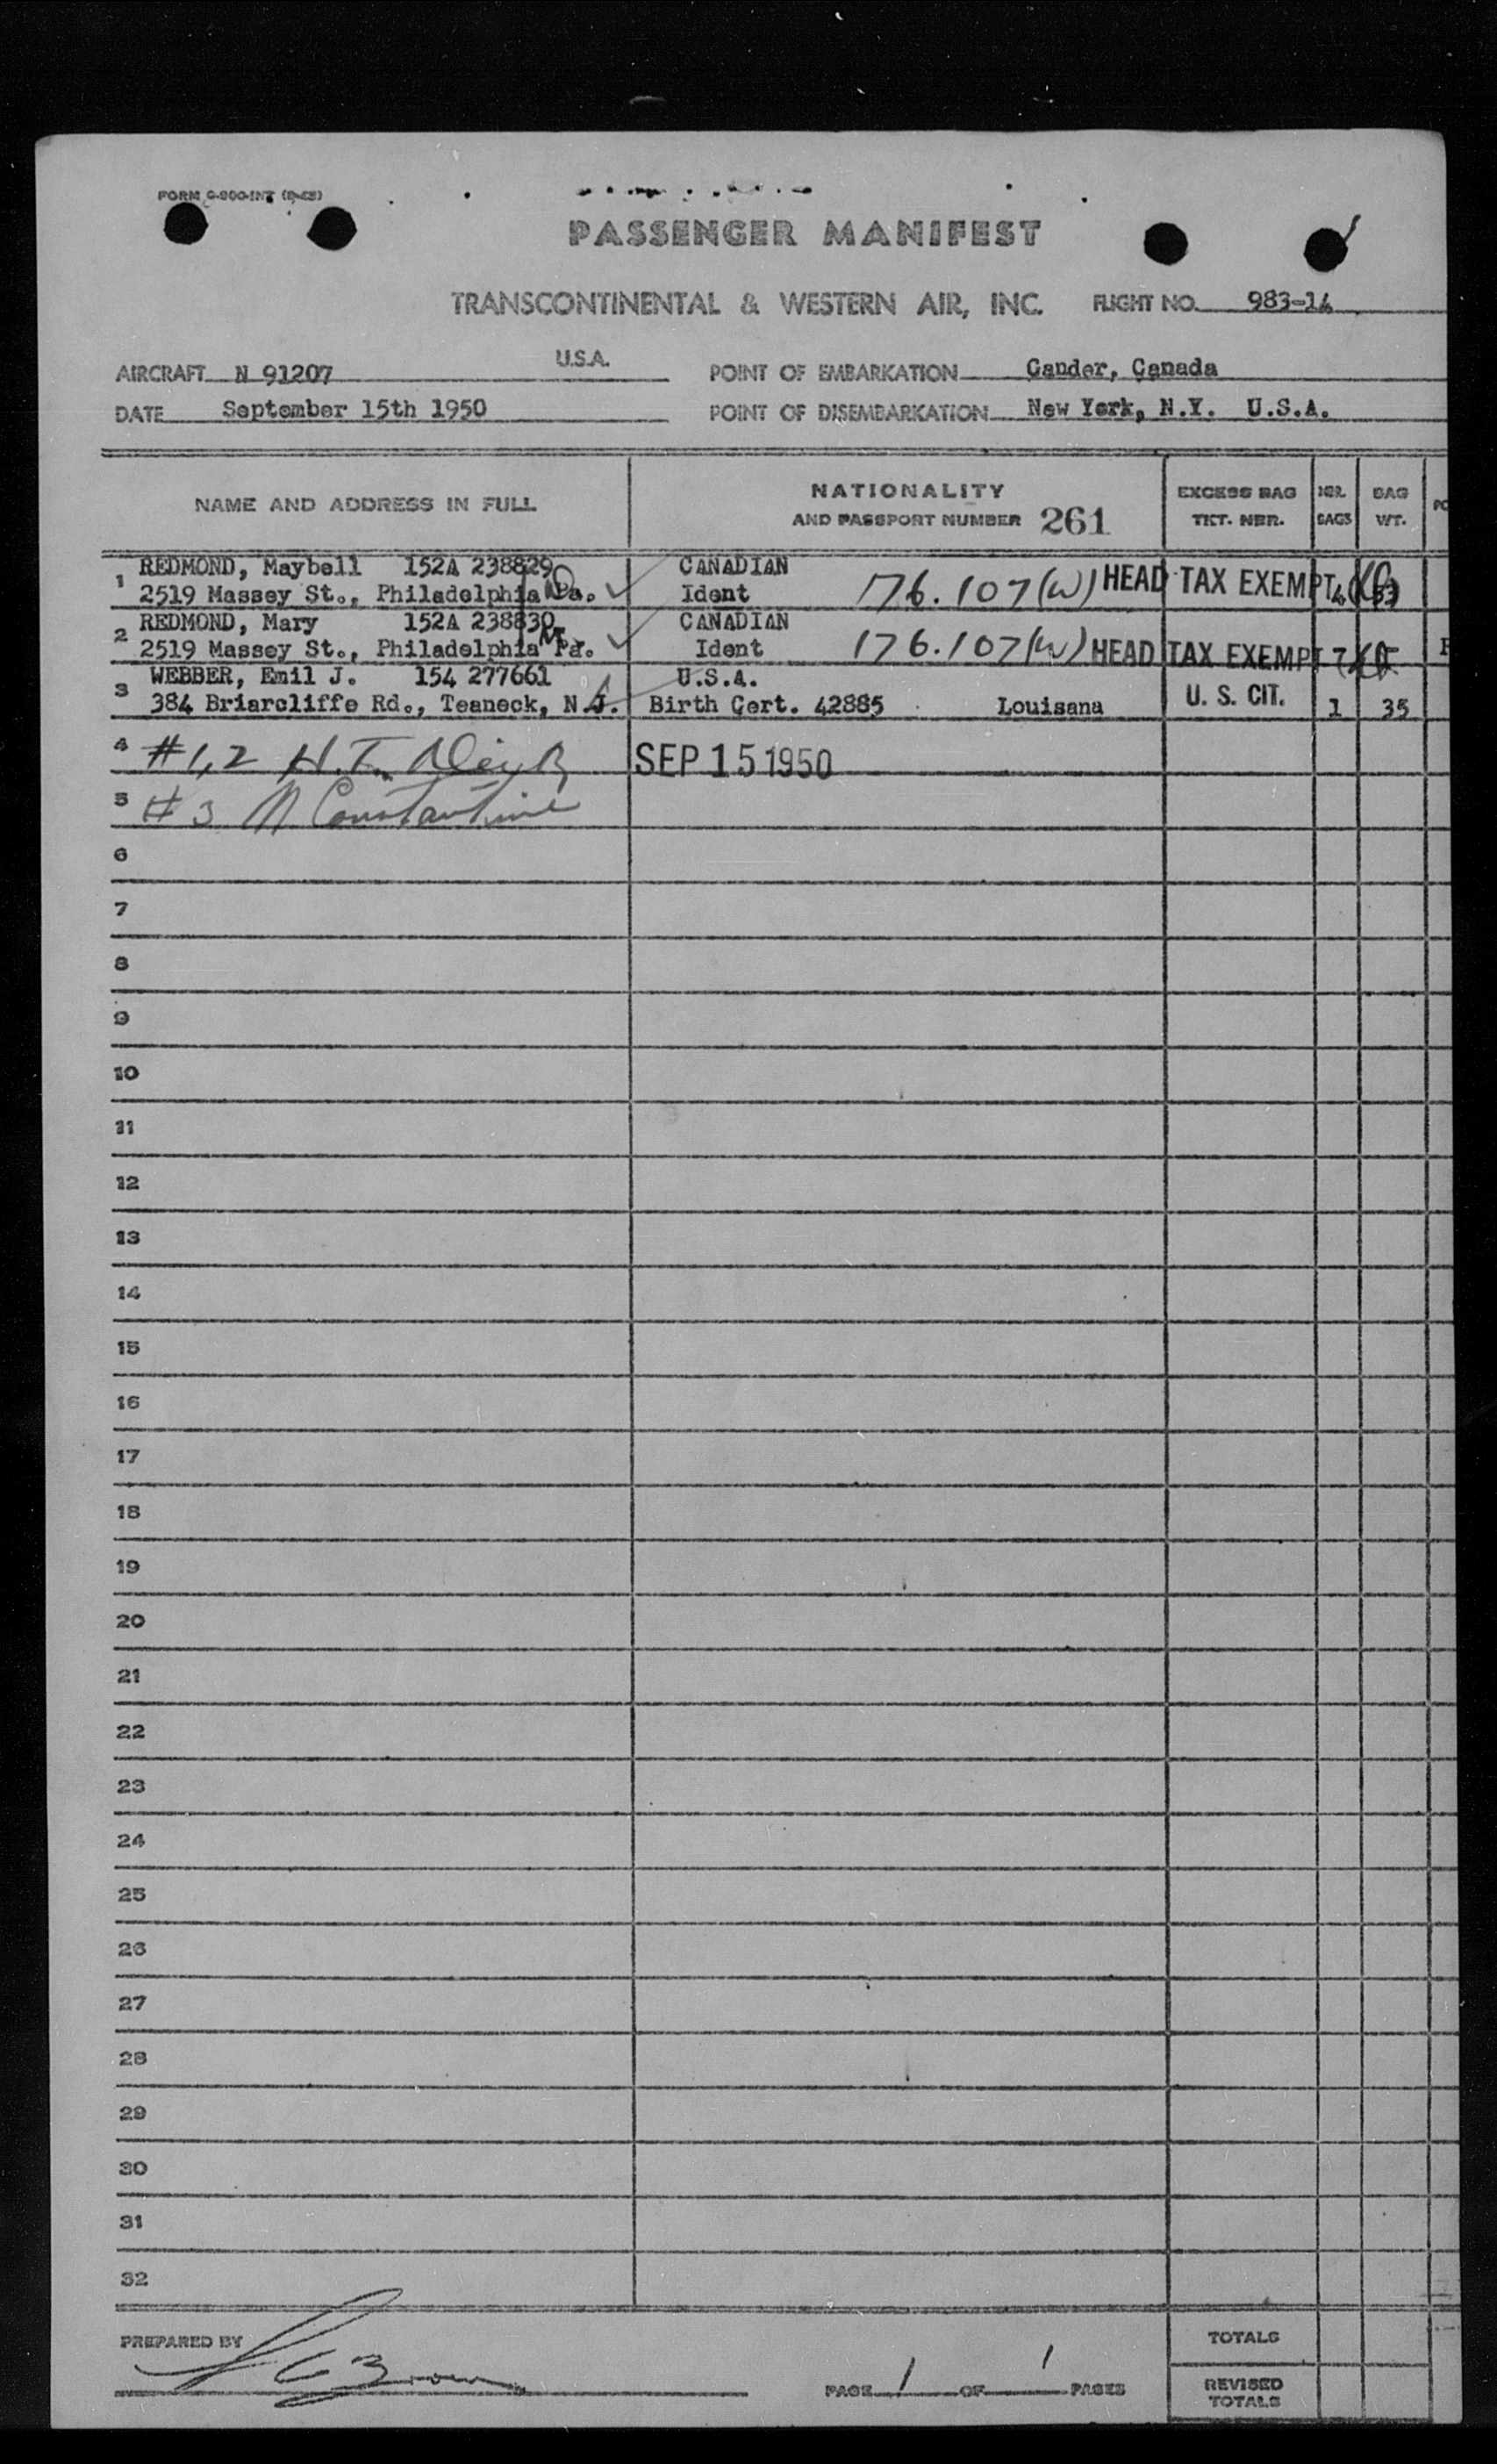 FORM
PASSENGER MANIFEST
TRANSCONTINENTAL & WESTERN AIR, INC. FLIGHT NO. 983-14
AIRCRAFT N 91207 U.S.A. POINT OF EMBARKATION Gander, Canada
DATE September 15th 1950 POINT OF DISEMBARKATION New York, N.Y. U.S.A.
NAME AND ADDRESS IN FULL
NATIONALITY
AND PASSPORT NUMBER 261
EXCESS BAG
TKT. NBR.
BAGS
BAG
WT.
1 REDMOND, Maybell 152A 238829 CANADIAN
2519 Massey St., Philadelphia Pa. Ident 176.107(W) HEAD TAX EXEMPT
2 REDMOND, Mary 152A 238830 CANADIAN
2519 Massey St., Philadelphia Pa. Ident 176.107(W) HEAD TAX EXEMPT
3 WEBBER, Emil J. 154 277661 U.S.A.
384 Briarcliffe Rd., Teaneck, N.J. Birth Cert. 42885 Louisana U. S. CIT. 1 35
4 #1,2 H.T. SEP 15 1950
5 #3 M Constantine
6
7
8
9
10
11
12
13
14
15
16
17
18
19
20
21
22
23
24
25
26
27
28
29
30
31
32
PREPARED BY
PAGE 1 OF 1 PAGES
TOTALS
REVISED
TOTALS